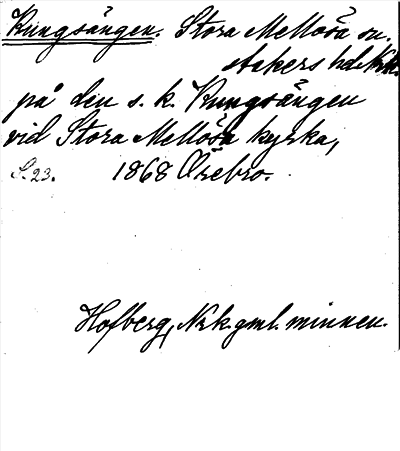 Kungsängen. Stora Mellösa sn.
Askers hd. Nrk.
på den s. k. Kungsängen
vid Stora Mellösa kyrka,
S. 23. 1868 Örebro.
Hofberg, Nrk. gml. minnen.